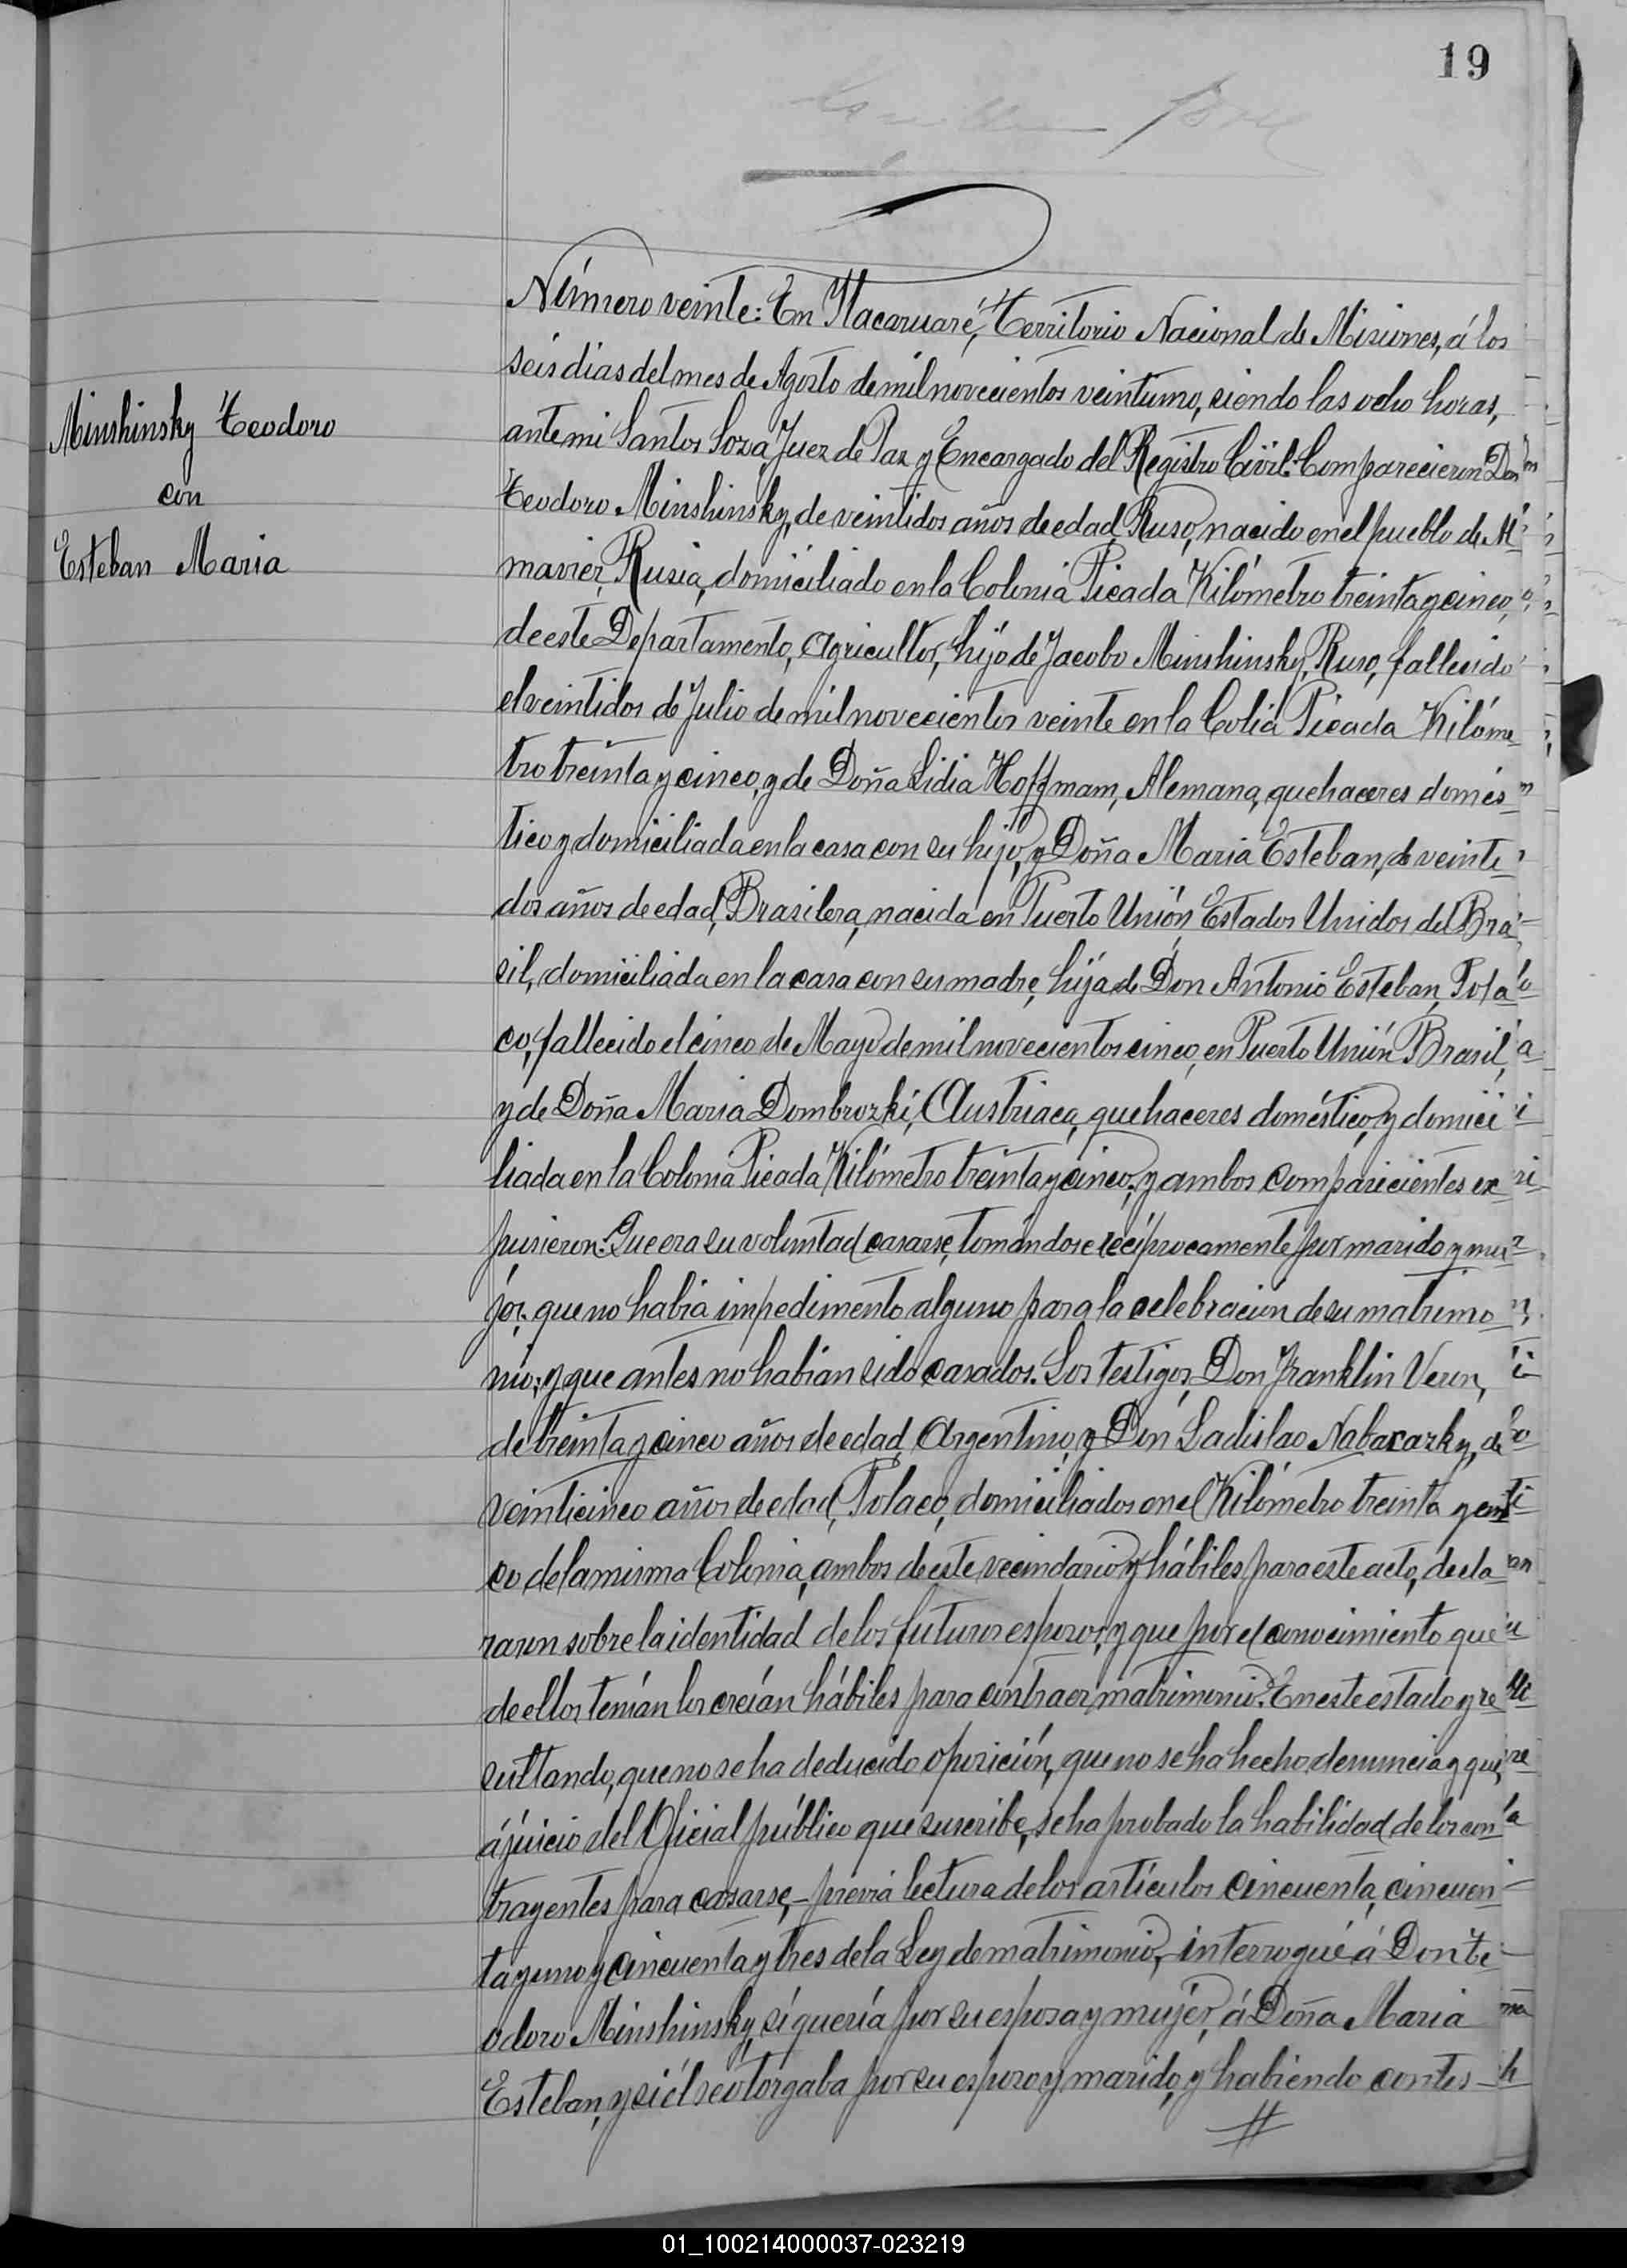 19
Número veinte: En Itacaruaré, Territorio Nacional de Misiones, á los
seis dias del mes de Agosto de mil novecientos veintiuno, siendo las ocho horas,
Minshinsky Teodoro
con
Esteban Maria
ante mi Santos Sosa, Juez de Paz y Encargado del Registro Civil: Comparecieron Don
Teodoro Minshinsky, de veintidos años de edad, Ruso, nacido en el pueblo de
mavier, Rusia, domiciliado en la Colonia Picada Kilómetro treinta y cinco,
de este Departamento, Agricultor, hijo de Jacobo Minshinsky, Ruso, fallecido
el veintidos de Julio de mil novecientos veinte en la Colia Picada Kilóme
tro treinta y cinco, y de Doña Lidia Hoffmam, Alemana, quehaceres domés
tico y domiciliada en la casa con su hijo, y Doña Maria Esteban, de veinti
dos años de edad, Brasilera, nacida en Puerto Unión, Estados Unidos del Bra
sil, domiciliada en la casa con su madre, hija de Don Antonio Esteban, Pola
co, fallecido el cinco de Mayo de mil novecientos cinco, en Puerto Unión Brasil,
y de Doña Maria Dombrozki, Austriaca, quehaceres doméstico, y domici
liada en la Colonia Picada Kilómetro treinta y cinco; y ambos comparicientes ex
pusieron: Que era su voluntad casarse, tomándose recíprocamente por marido y mu
jer; que no habia impedimento alguno para la celebracion de su matrimo
nio; y que antes no habian sido casados. Los testigos, Don Franklin Veron,
de treinta y cinco años de edad, Argentino, y Don Ladislao Nabarazky, de
veinticinco años de edad, Polaco, domiciliados en el Kilómetro treinta y cin
co de la misma Colonia, ambos de este vecindario y hábiles para este acto, decla
raron sobre la identidad de los futuros esposos, y que por el conocimiento que
de ellos tenían los creían hábiles para contraer matrimonio. En este estado y re
sultando, que no se ha deducido oposición, que no se ha hecho denuncia y que,
á juicio del Oficial público que suscribe, se ha probado la habilidad de los con
trayentes para casarse,- previa lectura de los artículos cincuenta, cincuen
ta y uno y cincuenta y tres de la Ley de matrimonio,- interrogué á Don Te
odoro Minshinsky, si quería por su esposa y mujer, á Doña Maria
Esteban, y si él se otorgaba por su esposo y marido, y habiendo contes-
01_100214000037-023219